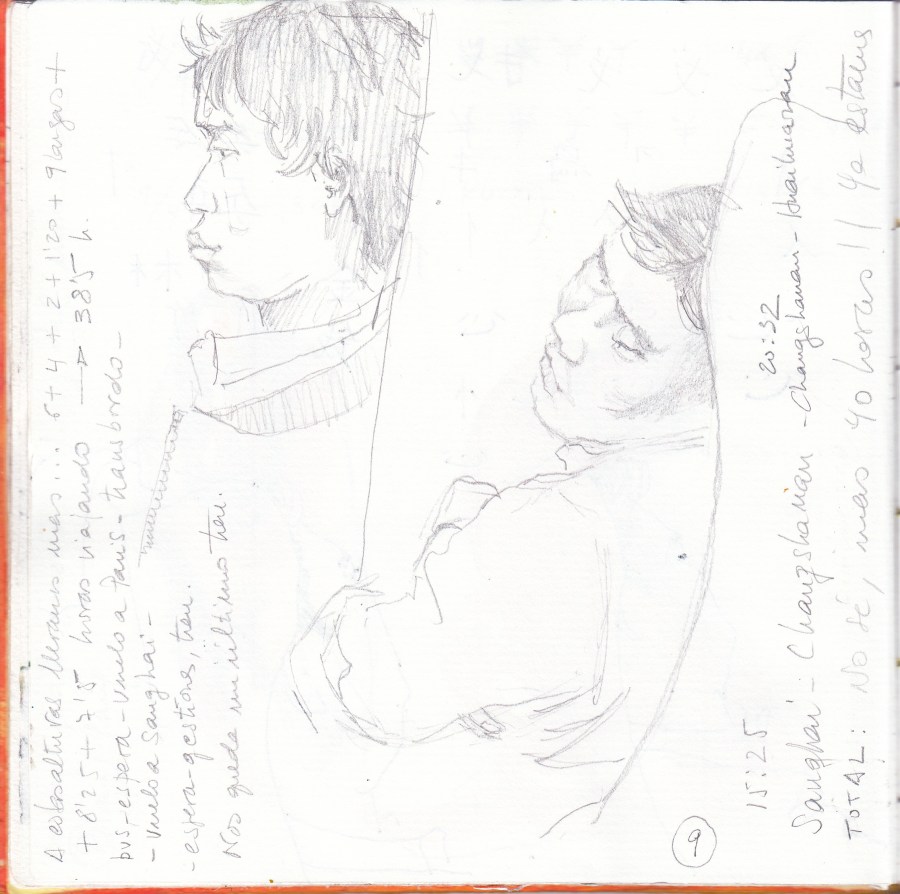 A estas alturas llevamos unas... 6 + 4 + 2 + 1'20 + 9 largas +
+ 8'25 + 7'5 horas viajando → 38'5 h.
bus-espera-vuelo a París-transbordo-
-vuelo a Sanghai-
-espera-gestiones, tren.
Nos queda un último tren.
15:25 20:32
Sanghai - Changshanan - Changshanan -
TOTAL: No sé, unas 40 horas!! Ya estamos
9